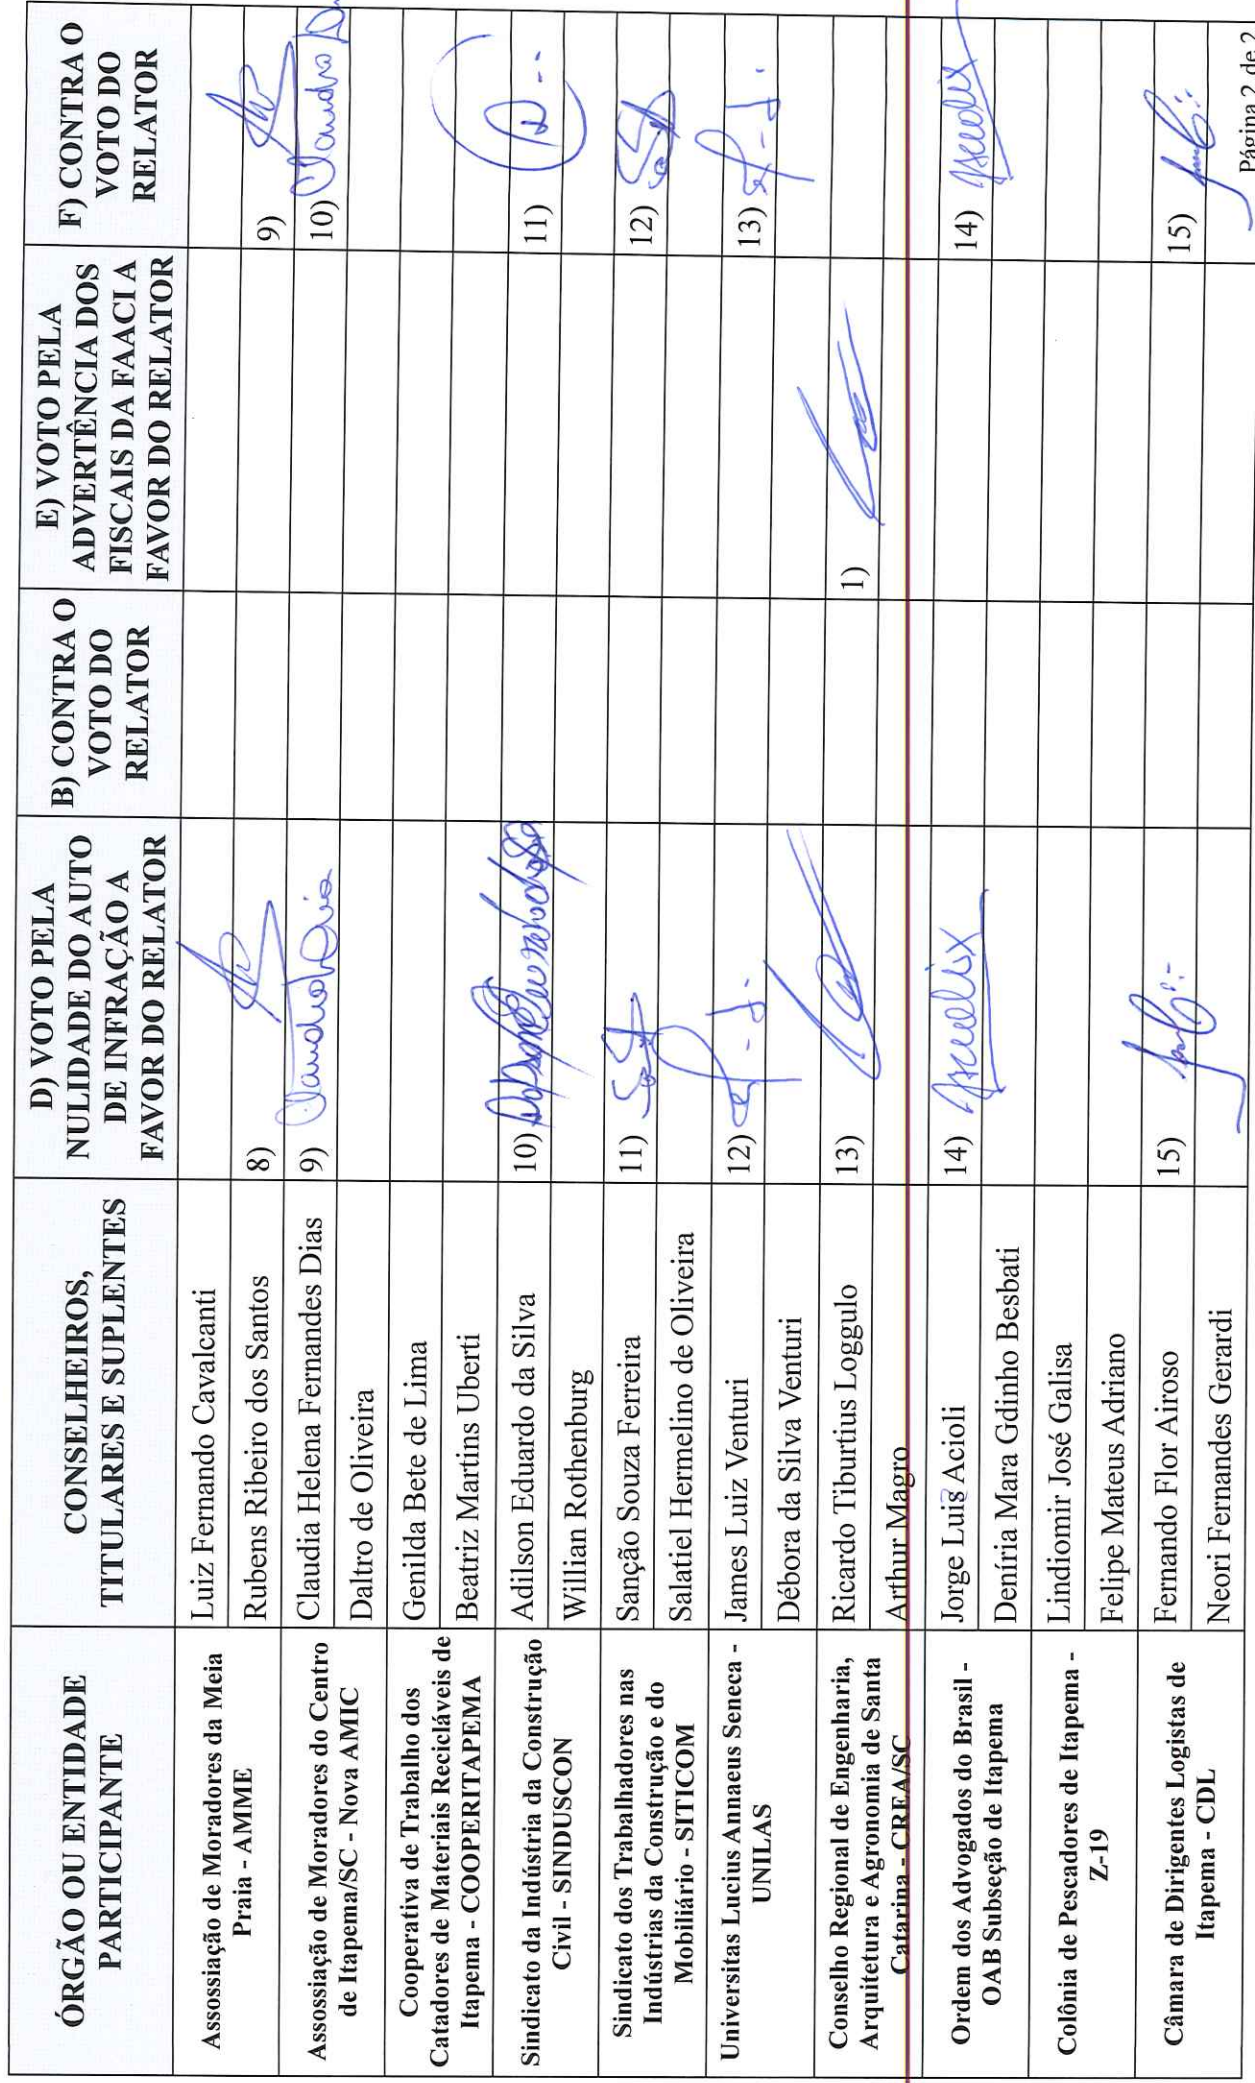 ÓRGÃO OU ENTIDADE
PARTICIPANTE
CONSELHEIROS,
TITULARES E SUPLENTES
D) VOTO PELA
NULIDADE DO AUTO
DE INFRAÇÃO A
FAVOR DO RELATOR
B) CONTRA O
VOTO DO
RELATOR
E) VOTO PELA
ADVERTÊNCIA DOS
FISCAIS DA FAACI A
FAVOR DO RELATOR
F) CONTRA O
VOTO DO
RELATOR
Assossiação de Moradores da Meia
Praia - AMME
Luiz Fernando Cavalcanti
Rubens Ribeiro dos Santos
8)
9)
Assossiação de Moradores do Centro
de Itapema/SC - Nova AMIC
Claudia Helena Fernandes Dias
9)
10)
Daltro de Oliveira
Cooperativa de Trabalho dos
Catadores de Materiais Recicláveis de
Itapema - COOPERITAPEMA
Genilda Bete de Lima
Beatriz Martins Uberti
Sindicato da Indústria da Construção
Civil - SINDUSCON
Adilson Eduardo da Silva
10)
11)
Willian Rothenburg
Sindicato dos Trabalhadores nas
Indústrias da Construção e do
Mobiliário - SITICOM
Sanção Souza Ferreira
11)
12)
Salatiel Hermelino de Oliveira
Universitas Lucius Annaeus Seneca -
UNILAS
James Luiz Venturi
12)
13)
Débora da Silva Venturi
Conselho Regional de Engenharia,
Arquitetura e Agronomia de Santa
Catarina - CREA/SC
Ricardo Tiburtius Loggulo
13)
1)
Arthur Magro
Ordem dos Advogados do Brasil -
OAB Subseção de Itapema
Jorge Luis Acioli
14)
14)
Deníria Mara Gdinho Besbati
Colônia de Pescadores de Itapema -
Z-19
Lindiomir José Galisa
Felipe Mateus Adriano
Câmara de Dirigentes Logistas de
Itapema - CDL
Fernando Flor Airoso
15)
15)
Neori Fernandes Gerardi
Página 2 de 2